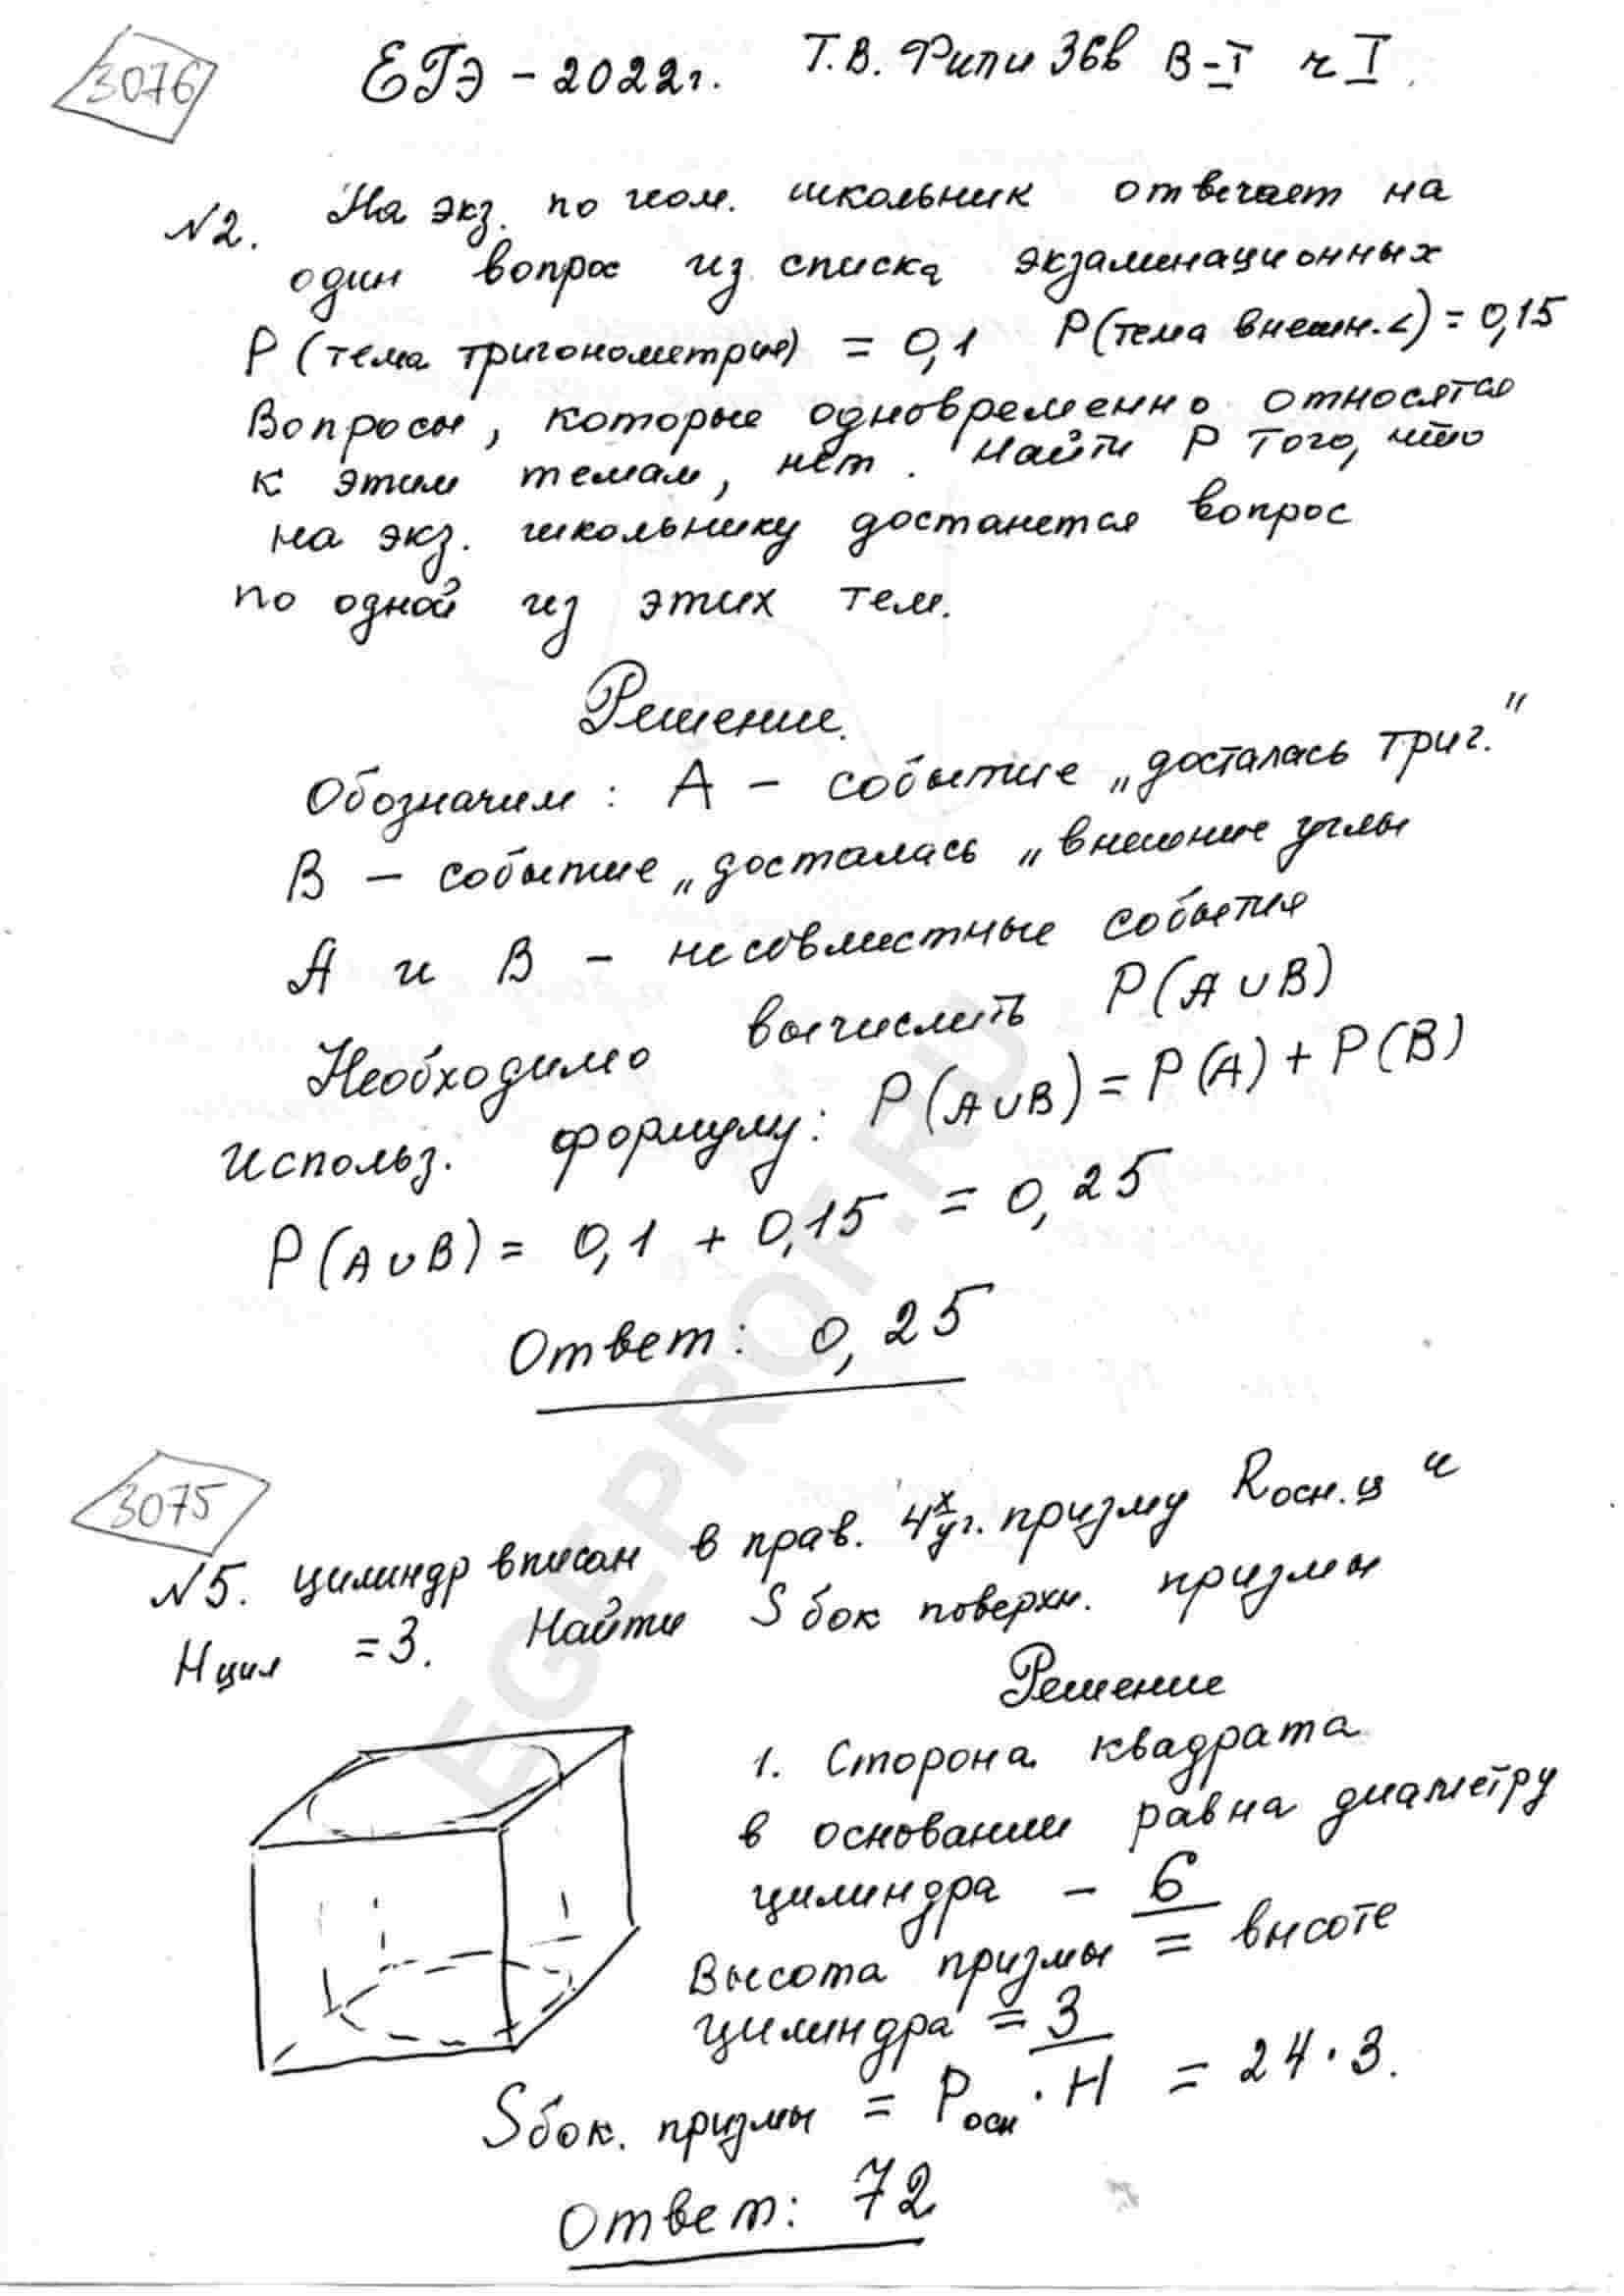 3076
ЕГЭ - 2022г. Т.В. Фипи 36в В-I ч I.
№2. На экз. по геом. школьник отвечает на
один вопрос из списка экзаменационных
P (тема тригонометрия) = 0,1 P(тема внешн. <) = 0,15
Вопросы, которые одновременно относятся
к этим темам, нет. Найти P того, что
на экз. школьнику достанется вопрос
по одной из этих тем.
Решение.
Обозначим: A - событие „досталась триг."
B - событие „досталась „внешние углы
A и B - несовместные события
Необходимо вычислить P(A∪B)
Использ. формулу: P(A∪B) = P(A) + P(B)
P(A∪B) = 0,1 + 0,15 = 0,25
Ответ: 0,25
3075
№5. цилиндр вписан в прав. 4х уг. призму Rосн. ц и
Hцил = 3. Найти Sбок поверхн. призмы
Решение
1. Сторона квадрата
в основании равна диаметру
цилиндра - 6
Высота призмы = высоте
цилиндра = 3
Sбок. призмы = Pосн · H = 24 · 3.
Ответ: 72
EGEPROF.RU